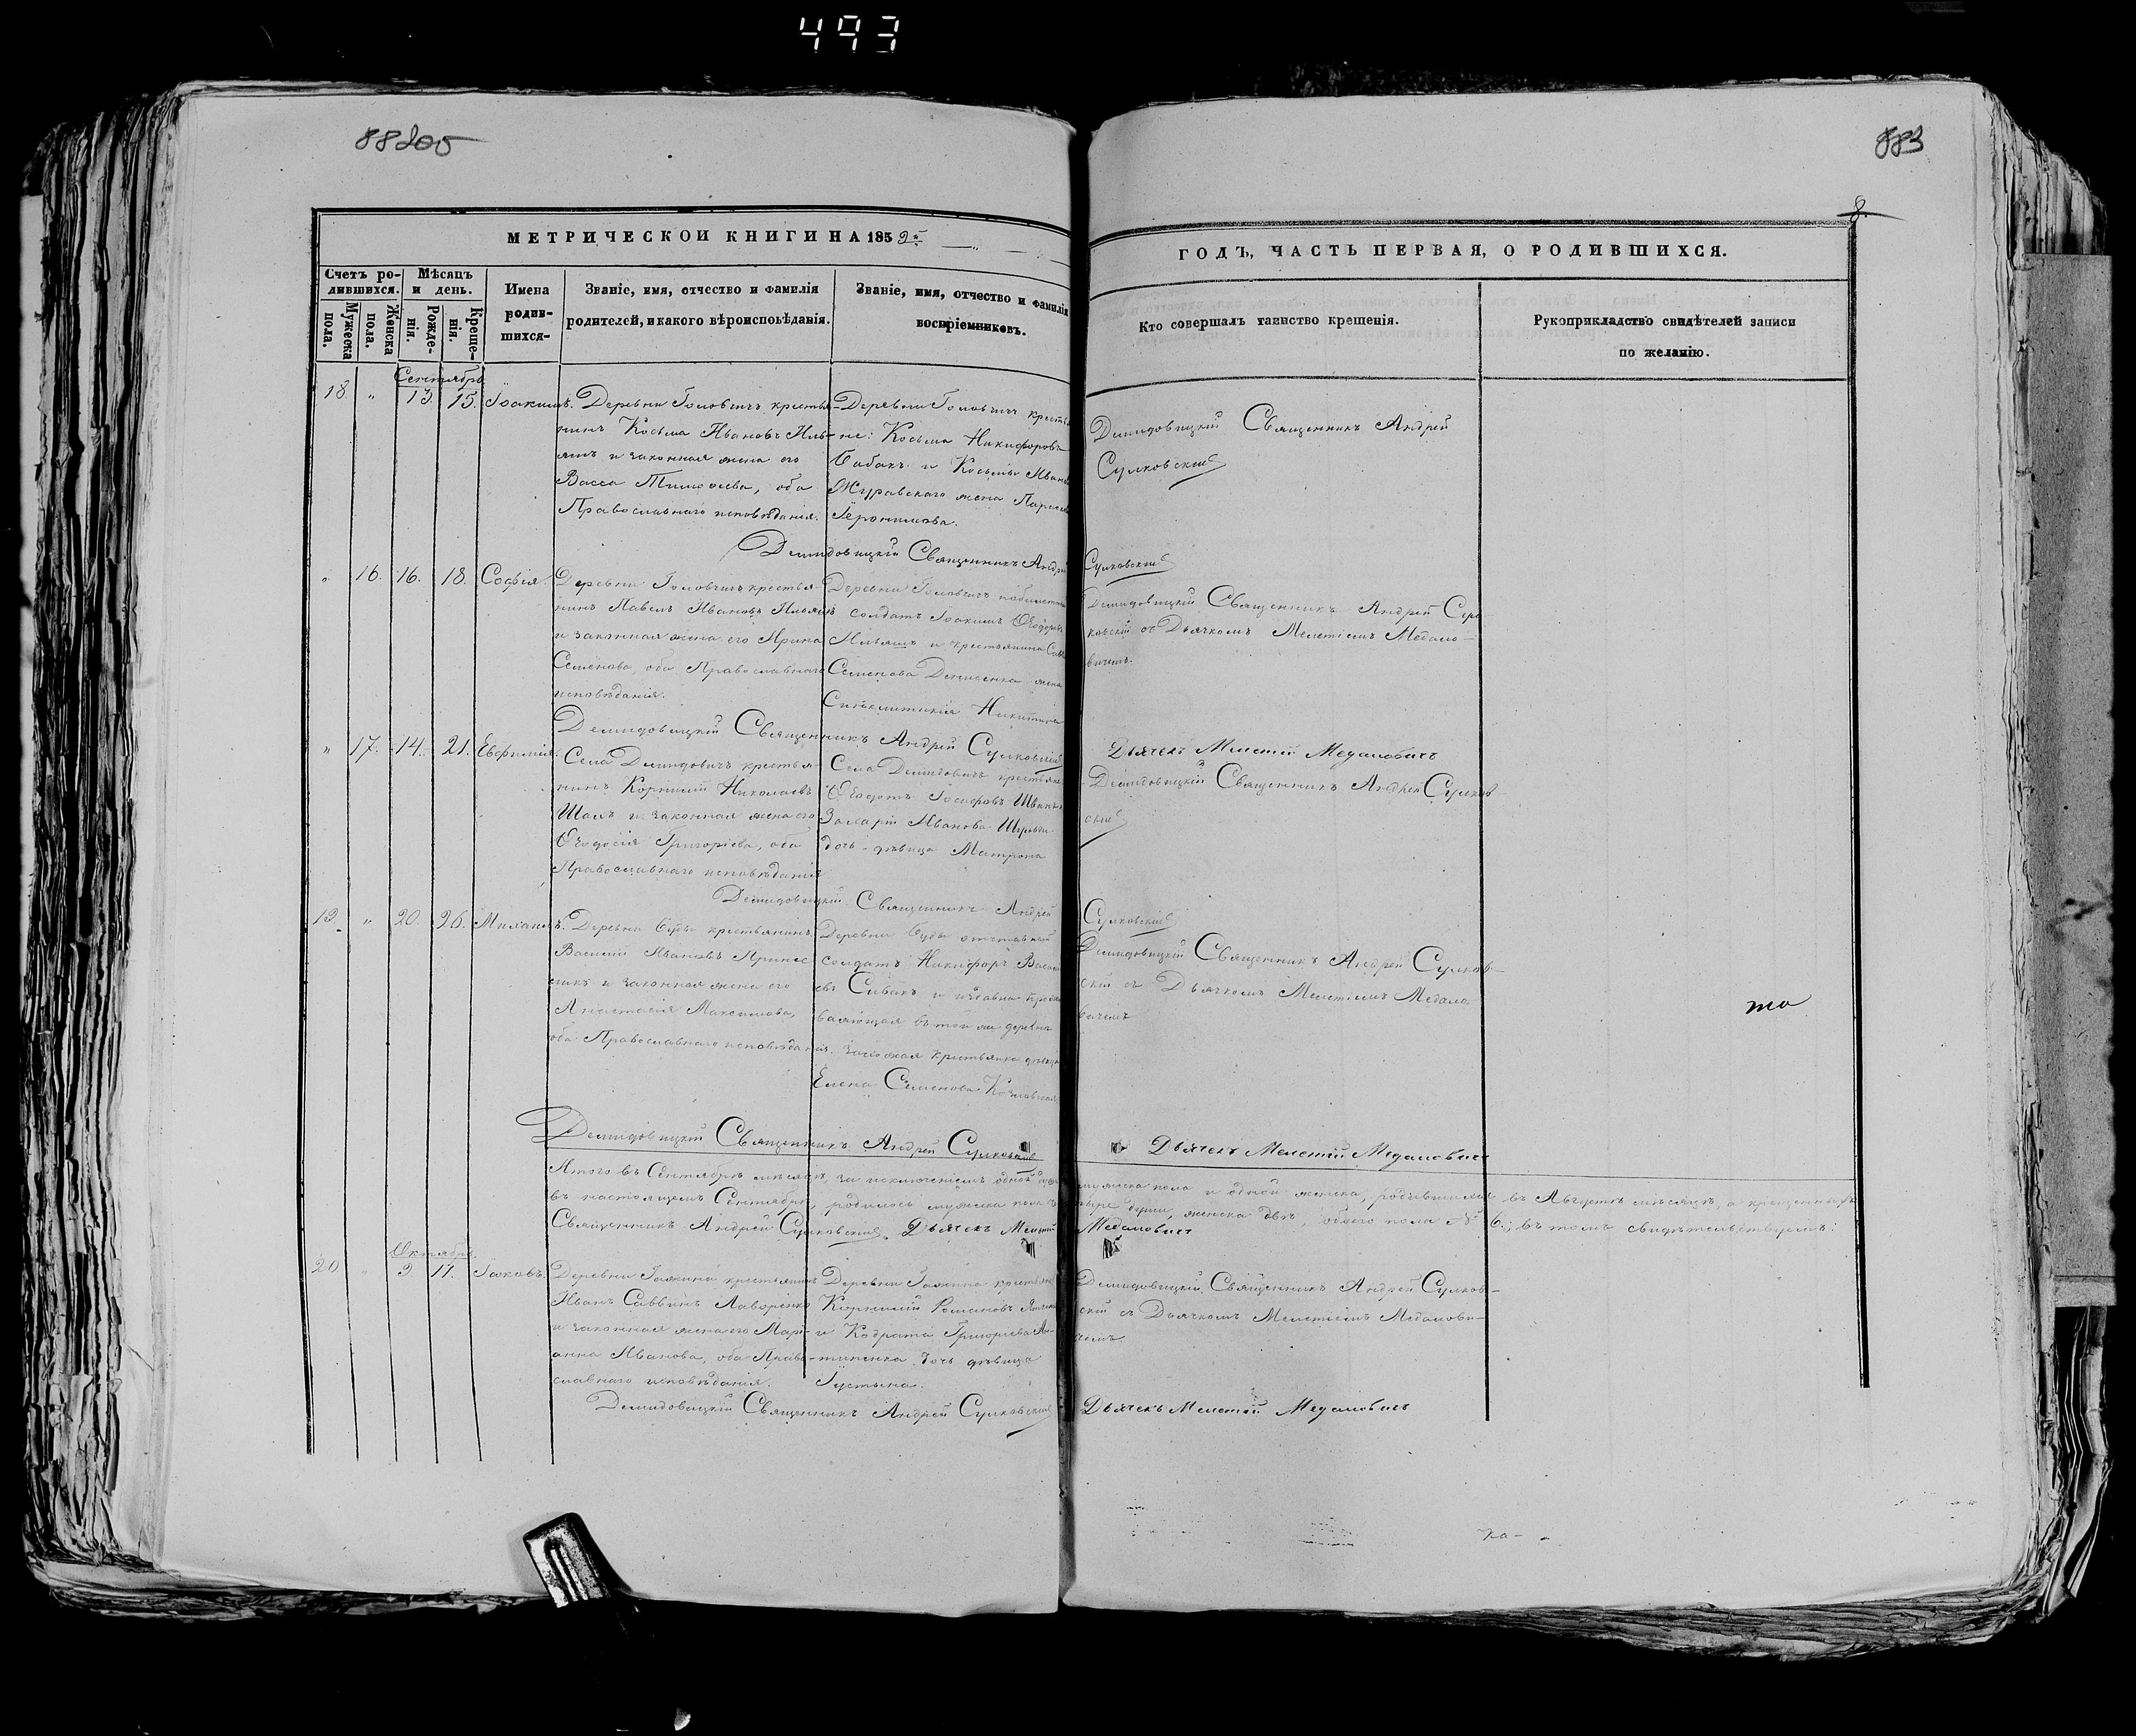 493
883
8.
МЕТРИЧЕСКОЙ КНИГИ НА 1859й
ГОДЪ, ЧАСТЬ ПЕРВАЯ, О РОДИВШИХСЯ.
Счетъ родившихся.
Мужеска пола.
Женска пола.
Мѣсяцъ и день.
Рожденія.
Крещенія.
Имена родившихся
Званіе, имя, отчество и фамилія
родителей, и какого вѣроисповѣданія.
Званіе, имя, отчество и фамилія
воспріемниковъ.
Кто совершалъ таинство крещенія.
Рукоприкладство свидѣтелей записи
по желанію.
Сентябрь
18. " 13. 15. Іоакимъ.
Деревни Головчичъ крестья-
нинъ Косьма Ивановъ Иль-
яшъ и законная жена его
Васса Тимоѳеева, оба
Православнаго исповѣданія.
Деревни Головчичъ крестья
не: Косьма Никифоровъ
Бабакъ и Косьмы Иванов
Журавскаго жена Параскев
Іеронимова.
Демидовицкій Священникъ Андрей
Сулковскій
Демидовицкій Священникъ Андрей Сулковскій
" 16. 16. 18. Софія
Деревни Головчичъ крестья-
нинъ Павелъ Ивановъ Ильяшъ
и законная жена его Ирина
Семенова, оба Православнаго
исповѣданія.
Деревни Головчичъ
солдатъ Іоакимъ Ѳеодоровъ
Ильяшъ и крестьянина
Семенова Денисенка жена
Синклитикія Никитина
Демидовицкій Священникъ Андрей Сул
ковскій съ Дьячкомъ Мелетіемъ Медало-
вичемъ.
Демидовицкій Священникъ Андрей Сулковскій
Дьячекъ Мелетій Медаловичъ
" 17. 14. 21. Евфимія.
Села Демидовичъ крестья-
нинъ Корнилій Николаевъ
Шалъ и законная жена его
Ѳеодосія Григоріева, оба
Православнаго исповѣданія
Села Демидовичъ крестьяне
Ѳеодотъ Іосифовъ
Захарія Иванова
дочь-дѣвица Матрона
Демидовицкій Священникъ Андрей Сулков-
скій
Демидовицкій Священникъ Андрей Сулковскій
19. " 20. 26. Михаилъ.
Деревни Буды крестьянинъ
Василій Ивановъ
и законная жена его
Анастасія Максимова,
оба Православнаго исповѣданія.
Деревни Буды отставный
солдатъ Никифоръ Василь
евъ Сивакъ и
въ той же деревни
крестьянка дѣвица
Елена Семенова Козловская
Демидовицкій Священникъ Андрей Сулков-
скій съ Дьячкомъ Мелетіемъ Медало
вичемъ
Демидовицкій Священникъ Андрей Сулковскій
Дьячекъ Мелетій Медаловичъ
Итого въ Сентябрѣ мѣсяцѣ, за исключеніемъ одной души мужеска пола и одной женска, родившихся въ Августѣ мѣсяцѣ, а крещенныхъ
въ настоящемъ Сентябрѣ, родилось мужеска пола четыре души, женска двѣ, обоего пола № 6; въ томъ свидѣтельствуемъ:
Священникъ Андрей Сулковскій. Дьячекъ Мелетій Медаловичъ
Октябрь.
20 " 9. 11. Іаковъ.
Деревни крестьянинъ
Иванъ Саввинъ Лавренко
и законная жена его Мари-
анна Иванова, оба Право-
славнаго исповѣданія.
Деревни крестьяне
Корнилій Романовъ
и Кодрата Григоріева Ан-
типенка дочь дѣвица
Іустина.
Демидовицкій Священникъ Андрей Сулков-
скій съ Дьячкомъ Мелетіемъ Медалови-
чемъ.
Демидовицкій Священникъ Андрей Сулковскій
Дьячекъ Мелетій Медаловичъ